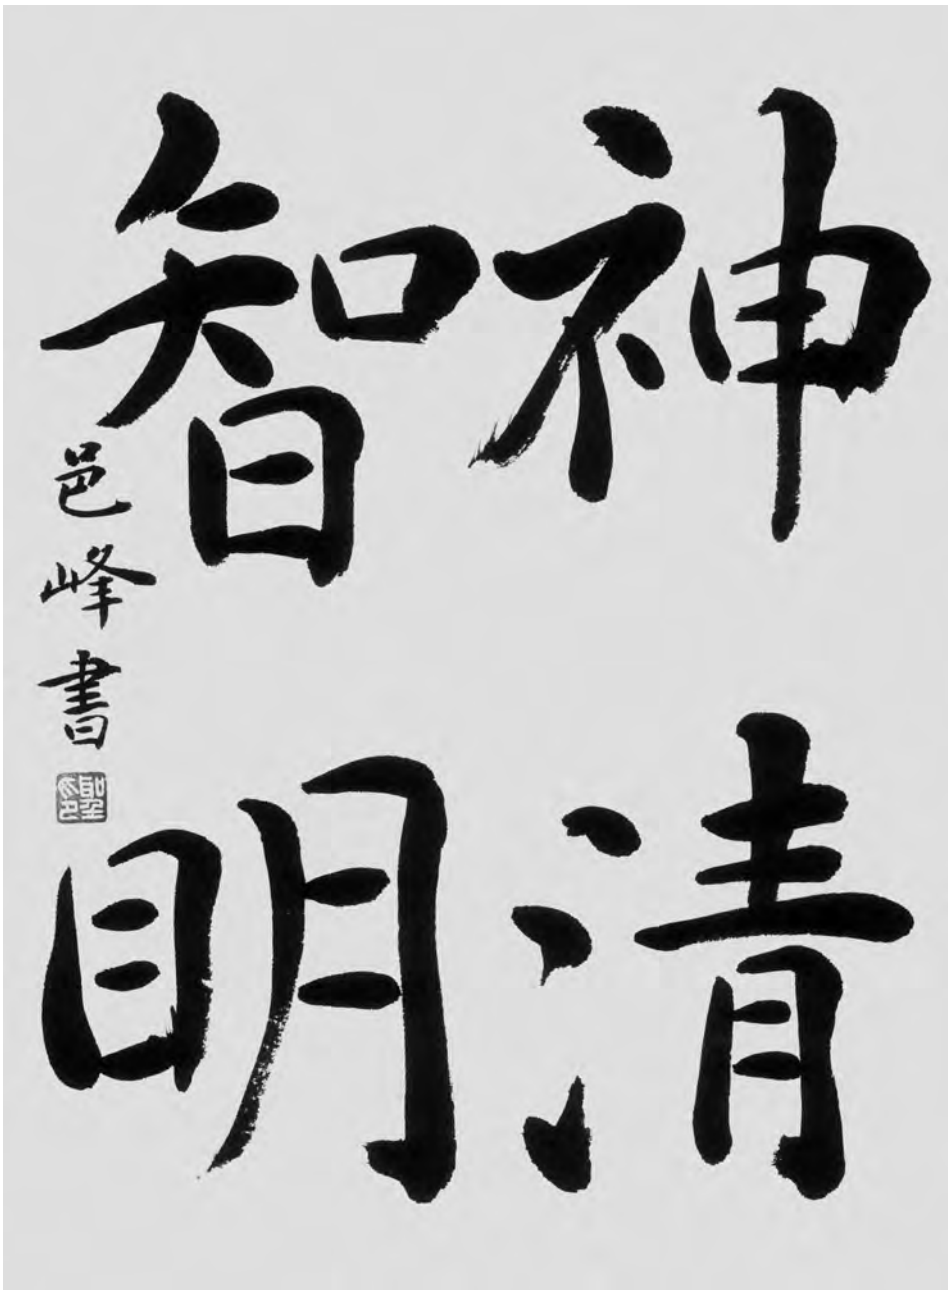 神清
智明
邑峰書